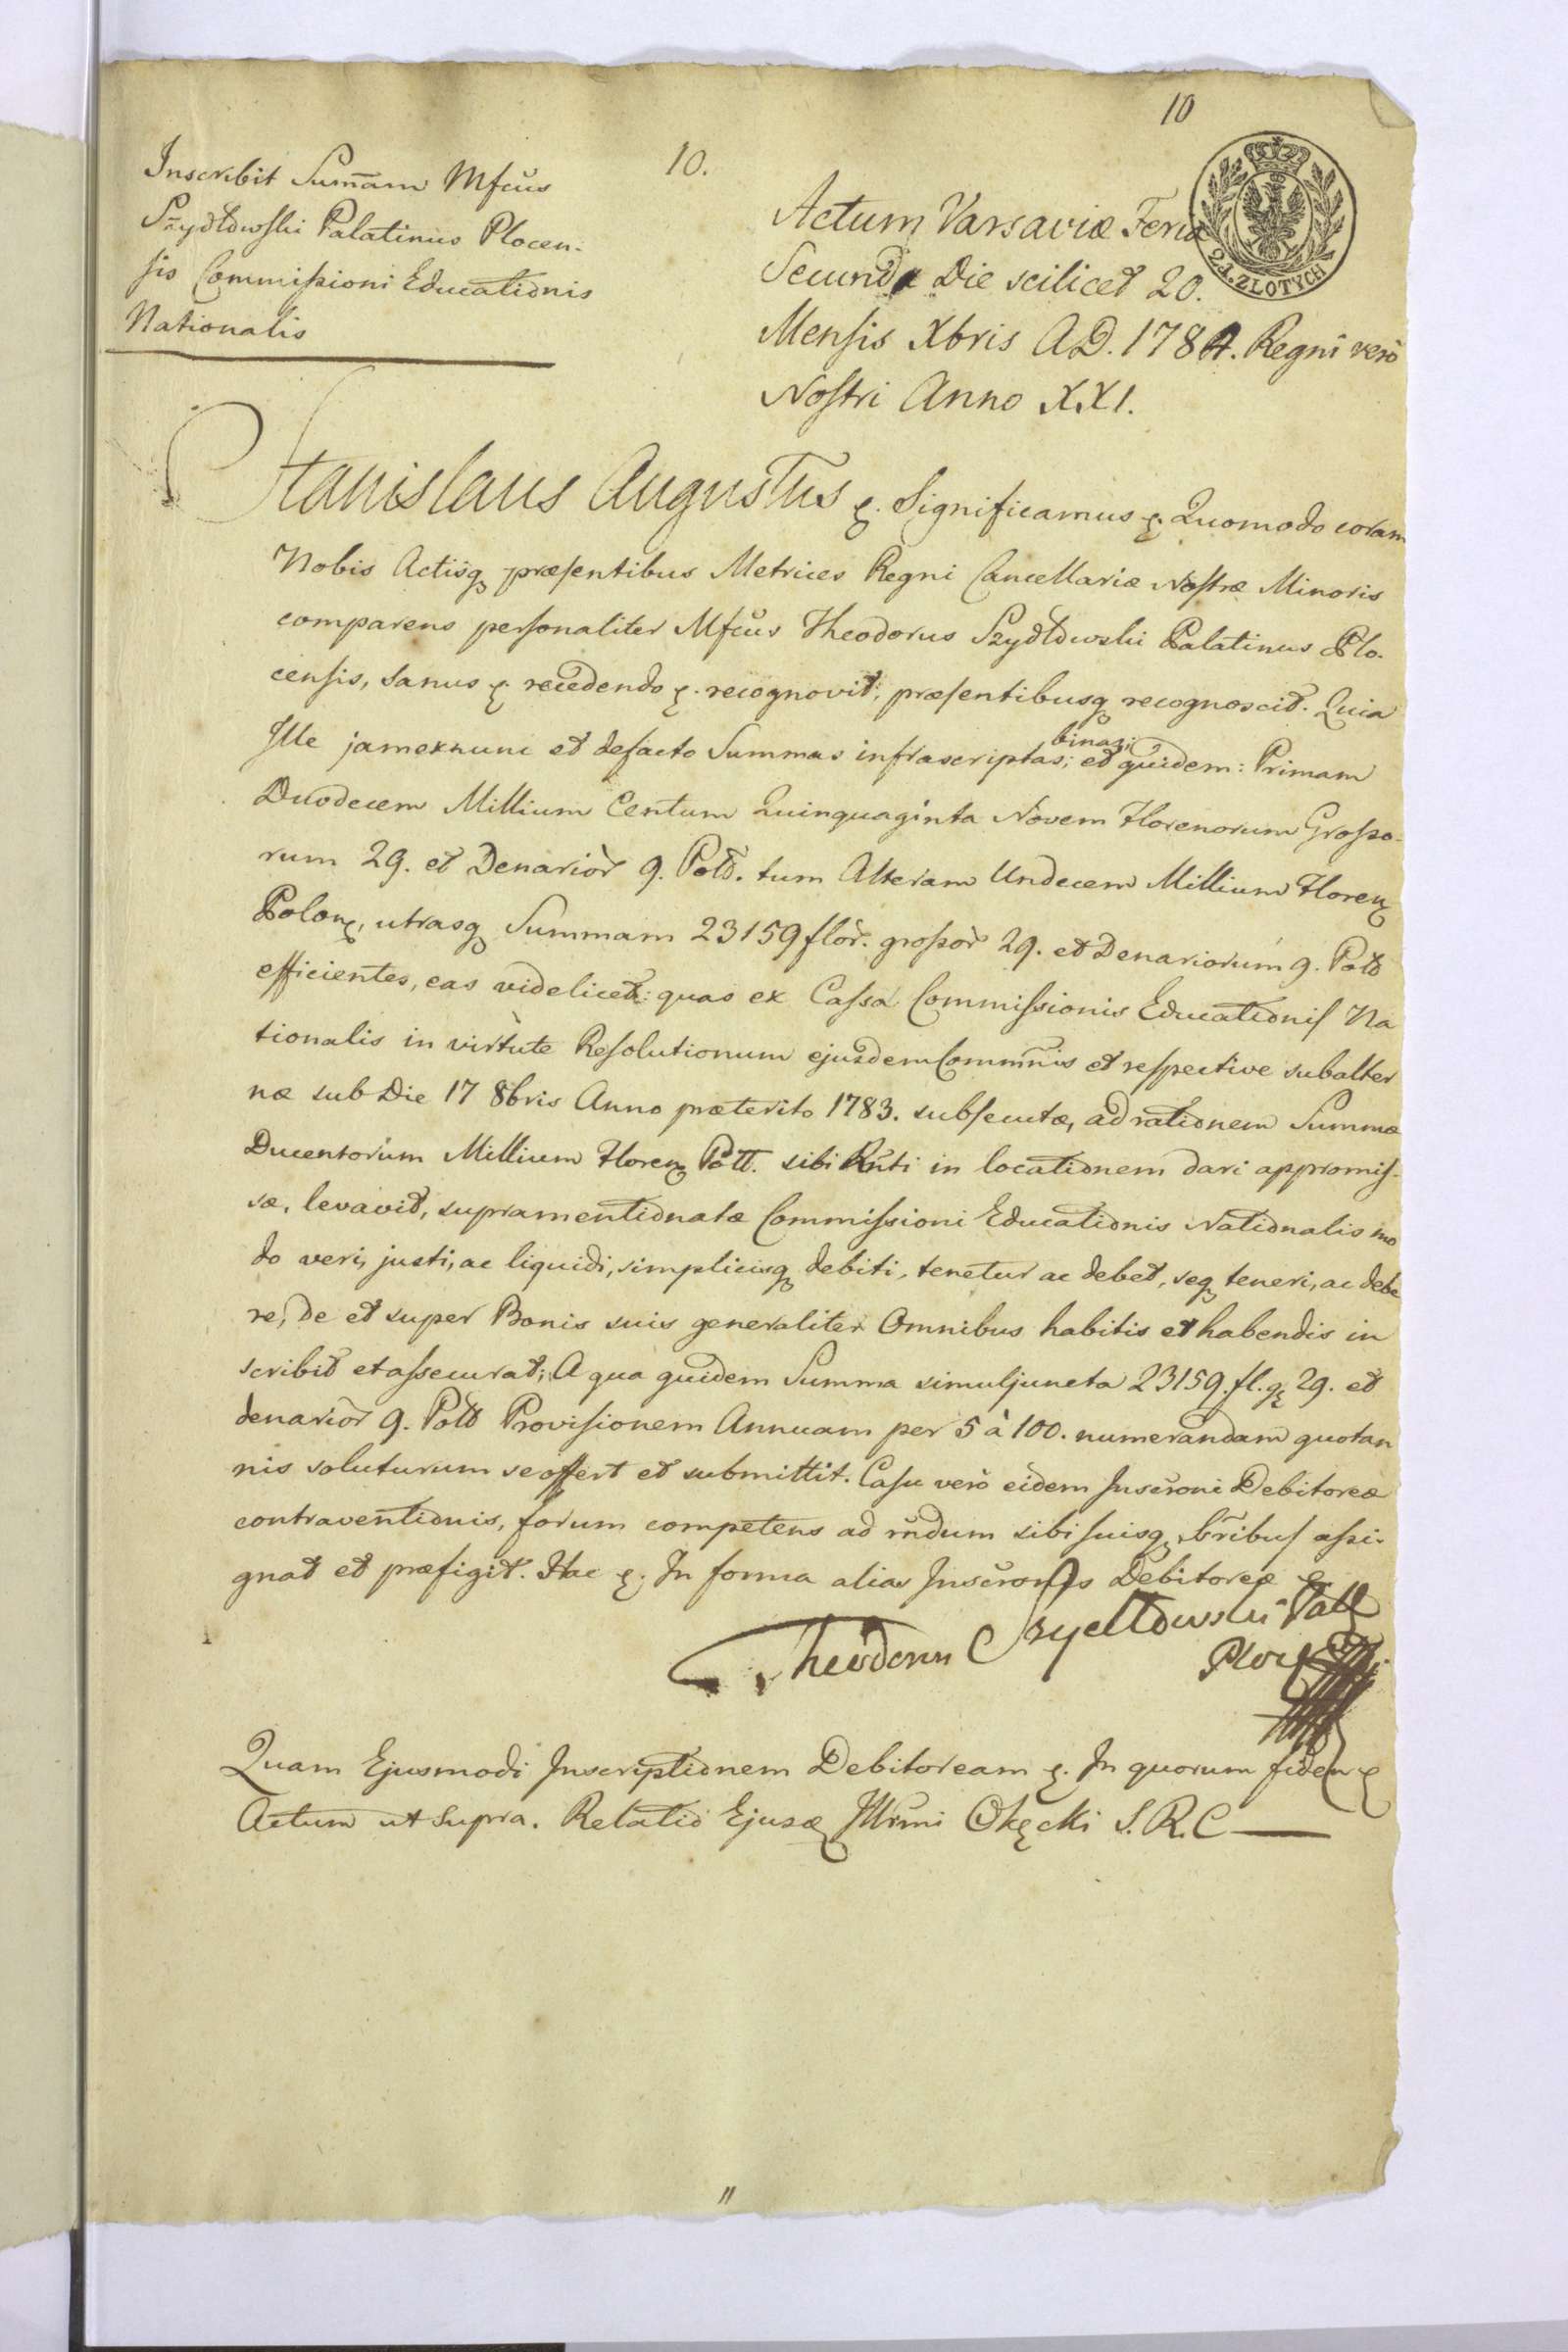 10
10.
Inscribit Sum̄am Mfcus
Szydłowski Palatinus Plocen-
sis Commissioni Educationis
Nationalis
Actum Varsaviæ Feria
Secunda Die scilicet 20.
Mensis Xbris AD. 1784. Regni verò
Nostri Anno XXI.
2 ZŁ. ZŁOTYCH
Stanislaus Augustus &. Significamus &. Quomodo coram
Nobis Actisq præsentibus Metrices Regni Cancellariæ Nostræ Minoris
comparens personaliter Mfcus Theodorus Szydłowski Palatinus Plo-
censis, sanus &. recedendo &. recognovit, præsentibusq recognoscit. Quia
Ille jamexnunc et defacto Summas infrascriptas; binas; et quidem: Primam
Duodecem Millium Centum Quinquaginta Novem Florenorum Grosso-
rum 29. et Denarior 9. Pold. tum Alteram Undecem Millium Floren
Polon, utrasq Summam 23159 flor. grossor 29. et Denariorum 9. Pold
efficientes, eas videlicet: quas ex Cassa Commissionis Educationis Na
tionalis in virtute Resolutionum ejusdem Commnis et respective subalter
næ sub Die 17 8bris Anno præterito 1783. subsecutæ, ad rationem Summæ
Ducentorum Millium Floren Poll. sibi Rnti in locationem dari appromis-
sæ, levavit, supramentionatæ Commissioni Educationis Nationalis mo
do veri, justi, ac liquidi, simplicisq debiti, tenetur ac debet, seq teneri, ac debe
re, de et super Bonis suis generaliter Omnibus habitis et habendis in
scribit et assecurat; A qua quidem Summa simuljuncta 23159. fl. g 29. et
denarior 9. Pold Provisionem Annuam per 5 à 100. numerandam quotan
nis soluturum se offert et submittit. Casu verò eidem Inscroni Debitoreæ
contraventionis, forum competens ad rndum sibi suisq sbribus assi-
gnat et præfigit. Hac &. In forma alias Inscronis Debitoreæ &
Theodorus Szydłowski Pall
Plocen
Quam Ejusmodi Inscriptionem Debitoream &. In quorum fidem &
Actum ut supra. Relatio Ejusd Illrmi Okęcki S. R. C